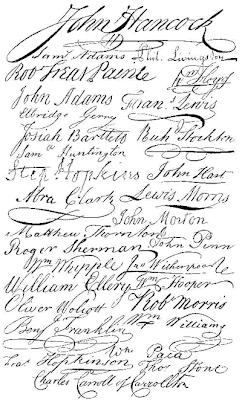 John Hancock
Saml Adams Phil. Livingston
Robt Treat Paine Wm Floyd
John Adams Frans Lewis
Elbridge Gerry
Josiah Bartlett Richd Stockton
Saml Huntington
Step Hopkins John Hart
Abra Clark Lewis Morris
John Morton
Matthew Thornton
Roger Sherman John Penn
Wm Whipple Jno Witherspoon
William Ellery Wm Hooper
Oliver Wolcott Robt Morris
Benj Franklin Wm Williams
Wm Paca
Fras Hopkinson Tho Stone
Charles Carroll of Carrollton